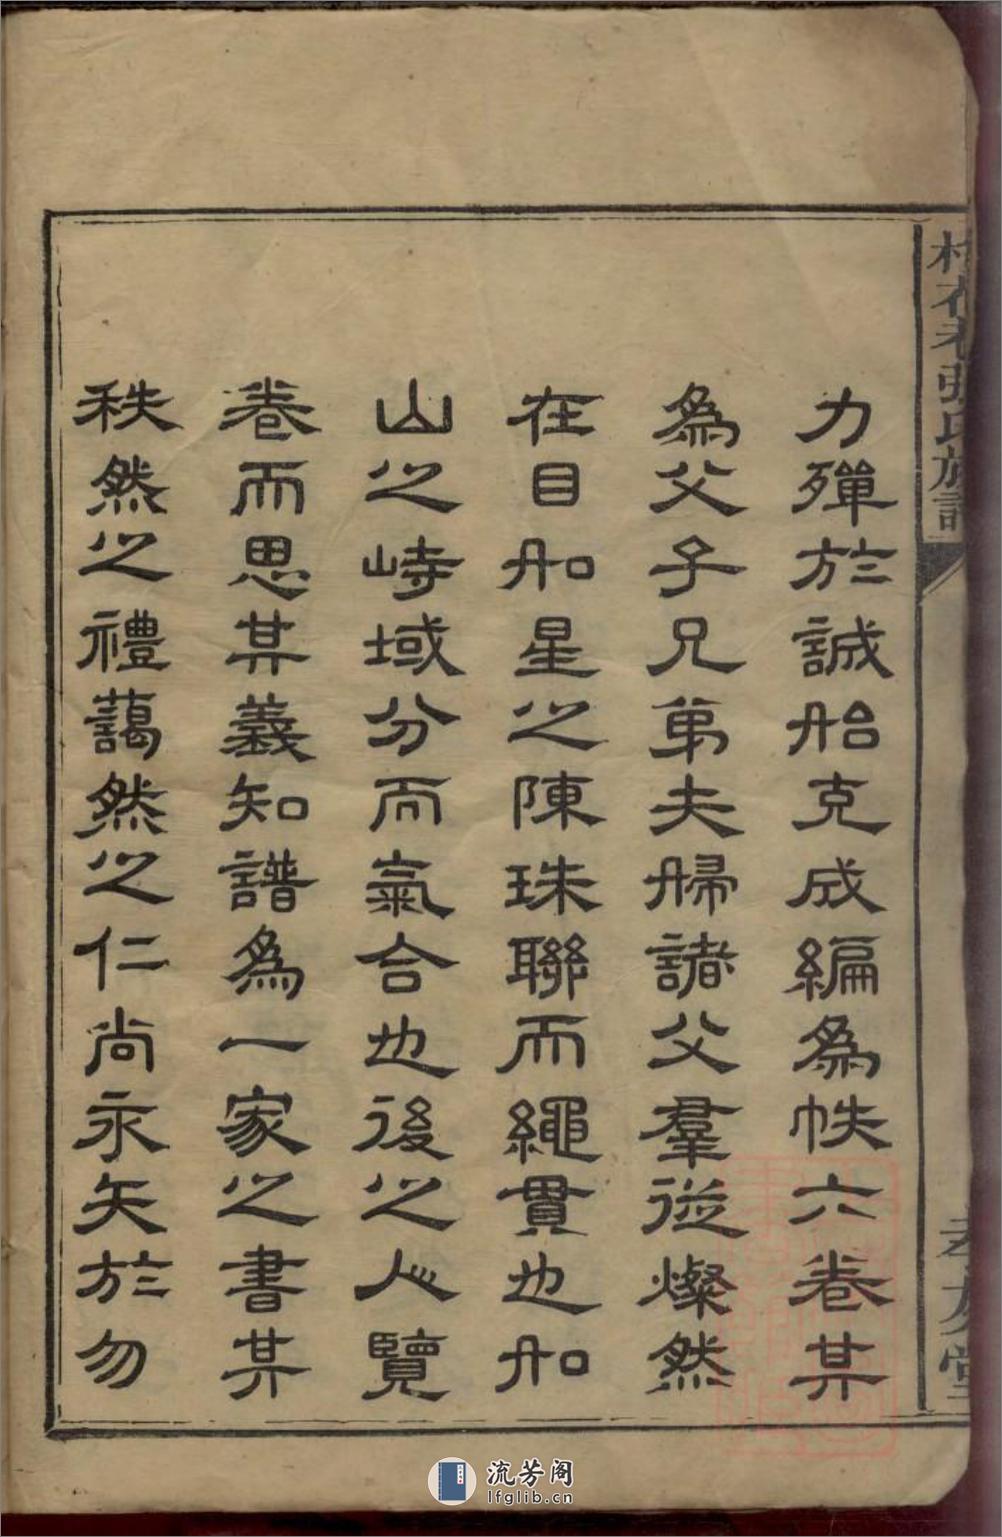 力殫於誠始克成編為帙六卷其
為父子兄弟夫婦諸父羣從燦然
在目如星之陳珠聯而繩貫也如
山之峙域分而氣合也後之人覽
卷而思其義知譜為一家之書其
秩然之禮藹然之仁尚永矢於勿
張氏族譜
孝友堂
流芳阁
lfglib.cn